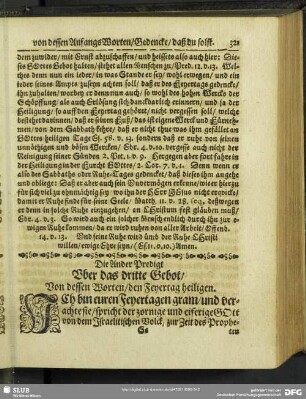 von dessen Anfangs Worten/ Gedencke/ daß du solst. 321
dem zuwider/ mit Ernst abzuschaffen/ und heissets also auch hier: Die-
ses Gottes Gebot halten/ stehet allen Menschen zu/ Pred. 12. v. 13. Wel-
ches denn nun ein ieder/ in was Stande er sey/ wohl erwegen/ und ein
ieder seines Amptes zuseyn achten soll/ daß er des Feyertags gedencke/
ihn zuhalten/ worbey er denn nun auch/ so wohl des hohen Wercks der
Schöpffung/ als auch Erlösung sich danckbarlich erinnern/ und ja der
Heiligung/ so auff den Feyertag geboten/ nicht vergessen soll/ weder
daß er seinen Fuß/ das ist eigene Werck und Fürneh-
men/ von dem Sabbath kehre/ daß er nicht thue was ihm gefället an
Gottes heiligen Tage Es. 58. v. 13. sondern daß er ruhe von seinen
unnöthigen und bösen Wercken/ Ebr. 4. v. 10. vergesse auch nicht der
Reinigung seiner Sünden 2. Pet. 1. v. 9. Hergegen aber fort fahre in
der Heiligung in der Furcht Gottes/ 2. Cor. 7. v. 1. Denn wenn er
also des Sabbaths oder Ruhe-Tages gedencket/ daß dieses ihm angehe
und obliege: Daß er aber auch sein Unvermögen erkenne/ wie er hierzu
für sich viel zu ohnmächtig sey/ wo ihn der HErr Jesus nicht erwecke/
damit er Ruhe finde für seine Seele/ Matth. 11. v. 28. 29. deßwegen
er denn in solche Ruhe einzugehen/ an Christum fest gläuben muß/
Ebr. 4. v. 3. So wird auch ein solcher Mensch endlich durch ihn zur e-
wigen Ruhe kommen/ da er wird ruhen von aller Arbeit/ Offenb.
14. v. 13. Und seine Ruhe wird umb der Ruhe Christi
willen/ ewige Ehre seyn/ (Es. 11. v. 10.) Amen.
Die Ander Predigt
Uber das dritte Gebot/
Von dessen Worten/ den Feyertag heiligen.
Ich bin euren Feyertagen gram/ und ver-
achte sie/ spricht der zornige und eiferige GOtt
von dem Israelitischen Volck, zur Zeit des Prophe-
ten
SLUB
DFG